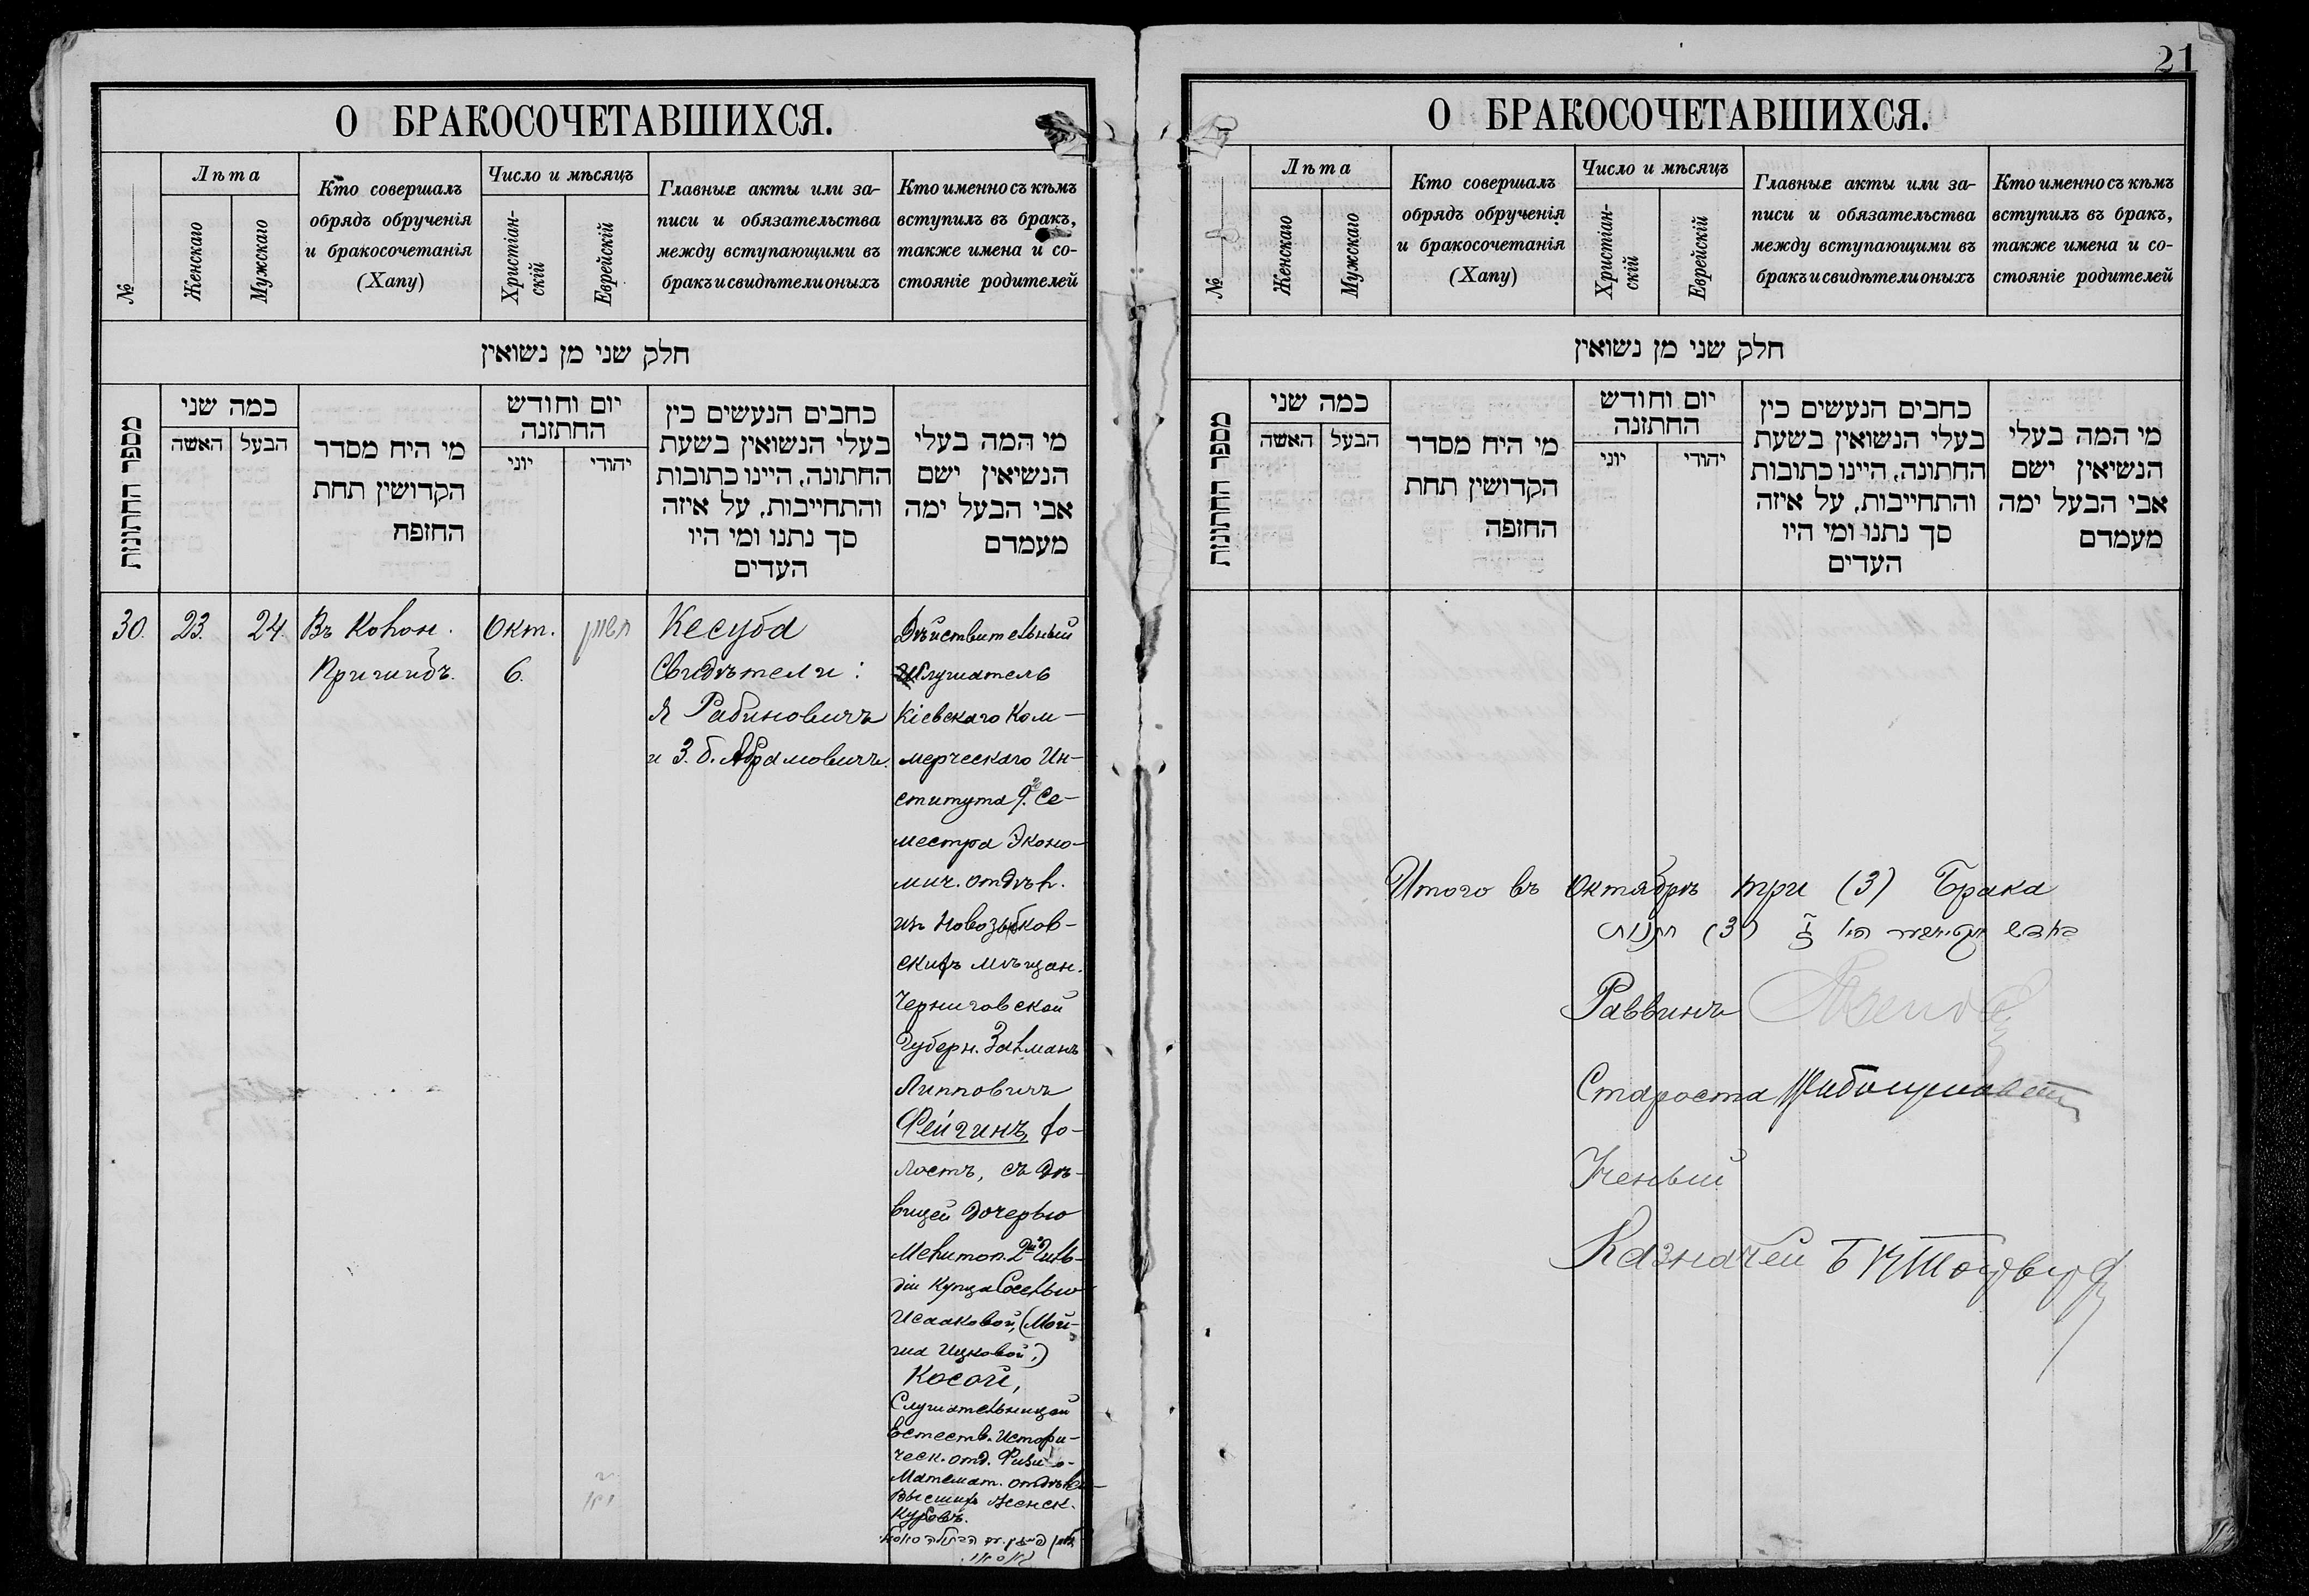 О БРАКОСОЧЕТАВШИХСЯ.
№
Лѣта
Женскаго
Мужскаго
Кто совершалъ
обрядъ обрученія
и бракосочетанія
(Хапу)
Число и мѣсяцъ
Христіан-
скій
Еврейскій
Главные акты или за-
писи и обязательства
между вступающими въ
бракъ и свидѣтели оныхъ
Кто именно съ кѣмъ
вступилъ въ бракъ,
также имена и со-
стояніе родителей
חלק שני מן נשואין
מספר החתונות
כמה שני
האשה
הבעל
מי היח מסדר
הקדושין תחת
החזפה
יום וחודש
החתזנה
יוני
יהודי
כחבים הנעשים כין
בעלי הנשואין בשעת
החתונה, היינו כתובות
והתחייבות, על איזה
סך נתנו ומי היו
העדים
מי המה בעלי
הנשיאין ישם
אבי הבעל ימה
מעמדם
30.
23.
24.
Въ Колон.
Пришибъ.
Окт.
6.
חשון
Кесуба
Свидѣтели:
Я Рабиновичъ
и З. б. Абрамовичъ.
Дѣйствительный
Слушатель
Кіевскаго Ком-
мерческаго Ин-
ститута 9. Се-
местра Эконо-
мич. отдѣл.
изъ Новозыбков-
скихъ мѣщан.
Черниговской
Губерн. Залманъ
Липповичъ
Фейгинъ, хо-
лостъ, съ дѣ-
вицей дочерью
Мелитоп. 2й Гиль-
діи купца Соселью
Исааковой, (Мой-
Ицковой,)
Косой,
Слушательницей
Естеств. Истори-
ческ. отд. Физико-
Математ. отдѣле-
Высшихъ женск.
Курсовъ.
О БРАКОСОЧЕТАВШИХСЯ.
21
№
Лѣта
Женскаго
Мужскаго
Кто совершалъ
обрядъ обрученія
и бракосочетанія
(Хапу)
Число и мѣсяцъ
Христіан-
скій
Еврейскій
Главные акты или за-
писи и обязательства
между вступающими въ
бракъ и свидѣтели оныхъ
Кто именно съ кѣмъ
вступилъ въ бракъ,
также имена и со-
стояніе родителей
חלק שני מן נשואין
מספר החתונות
כמה שני
האשה
הבעל
מי היח מסדר
הקדושין תחת
החזפה
יום וחודש
החתזנה
יוני
יהודי
כחבים הנעשים כין
בעלי הנשואין בשעת
החתונה, היינו כתובות
והתחייבות, על איזה
סך נתנו ומי היו
העדים
מי המה בעלי
הנשיאין ישם
אבי הבעל ימה
מעמדם
Итого въ Октябрѣ три (3) Брака
(3) חתונות
Раввинъ
Староста
Ученый
Казначей